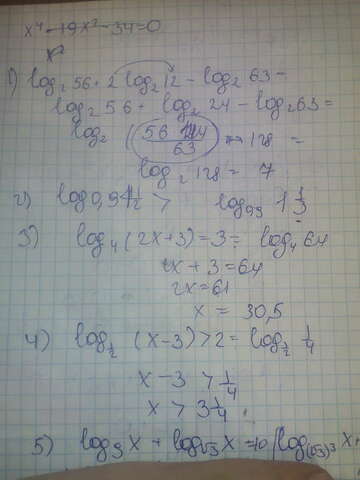 x⁴ - 19x² - 34 = 0
x²
1) log₂ 56 + 2 log₂ 12 - log₂ 63 =
log₂ 56 + log₂ 24 - log₂ 63 =
log₂ ( 56 144 / 63 ) 128 =
log₂ 128 = 7
2) log0,9 > log₀,₉ 1 1/3
3) log₄ (2x+3) = 3 = log₄ 64
2x + 3 = 64
2x = 61
x = 30,5
4) log½ (x-3) > 2 = log½ 1/4
x - 3 > 1/4
x > 3 1/4
5) log₉ x + log√3 x = 10 / log(√3)³ x +